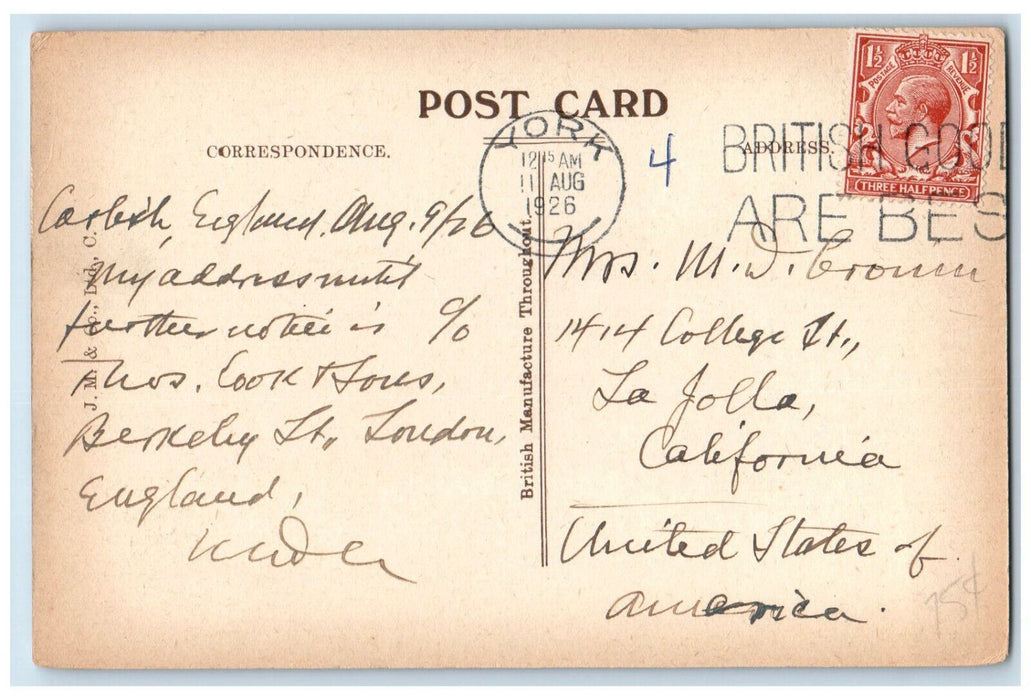 POST CARD
CORRESPONDENCE.
ADDRESS.
YORK
12 15 AM
11 AUG
1926
4
BRITISH GOOD
ARE BES
1½ 1½
POSTAGE REVENUE
THREE HALFPENCE
England, Aug. 9/26
My address until
further notice is c/o
Thos. Cook & Sons,
Berkeley St., London,
England,
J. M. & Co., Ltd., C.
British Manufacture Throughout.
Mrs. M. D. Cronin
1414 College St.,
La Jolla,
California
United States of
America.
75¢